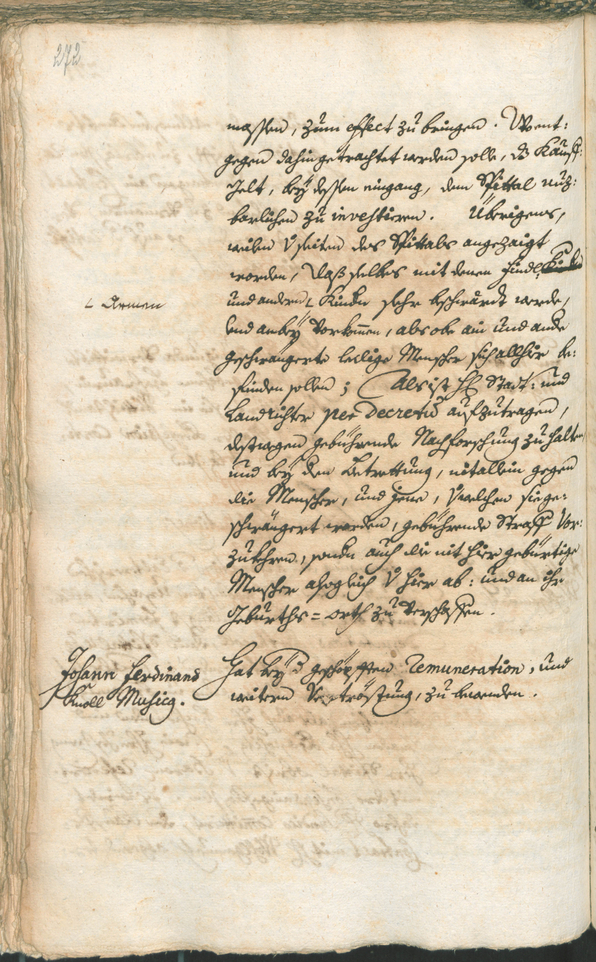 272
massen, zum effect zu bringen. Woent:
gegen dahin getrachtet werden solle, ds Kauff:
gelt, bey dessen eingang, dem Spittal nuz:
barlichen zu investieren. Übrigens,
weilen v seiten des Spittals angezaigt
worden, daß selbes mit denen Findl
und andern ⌊ Kinder sehr beschwärdt werde,
⌊ Armen
und anbey vorkomen, als ob ein und andere
geschwangerte ledige Menscher sich allhier be:
finden sollen; Als ist H. Stadt: und
Landrichter per Decretum aufzutragen,
destwegen gebührende Nachforschung zu halten
und bey dem Betrettung, nit allein gegen
die Menscher, und jene, v welchen sie ge:
schwängert worden, gebührende Straff vor:
zukehren, sondern auch die nit hier gebürtige
Menscher alsogleich v hier ab: und an ihr
Geburths=orth zu verschaffen.
Johann Ferdinand
Knoll Musicg.
Hat bey d geschöpfften remuneration, und
weitern Vertröstung, zu bewenden.